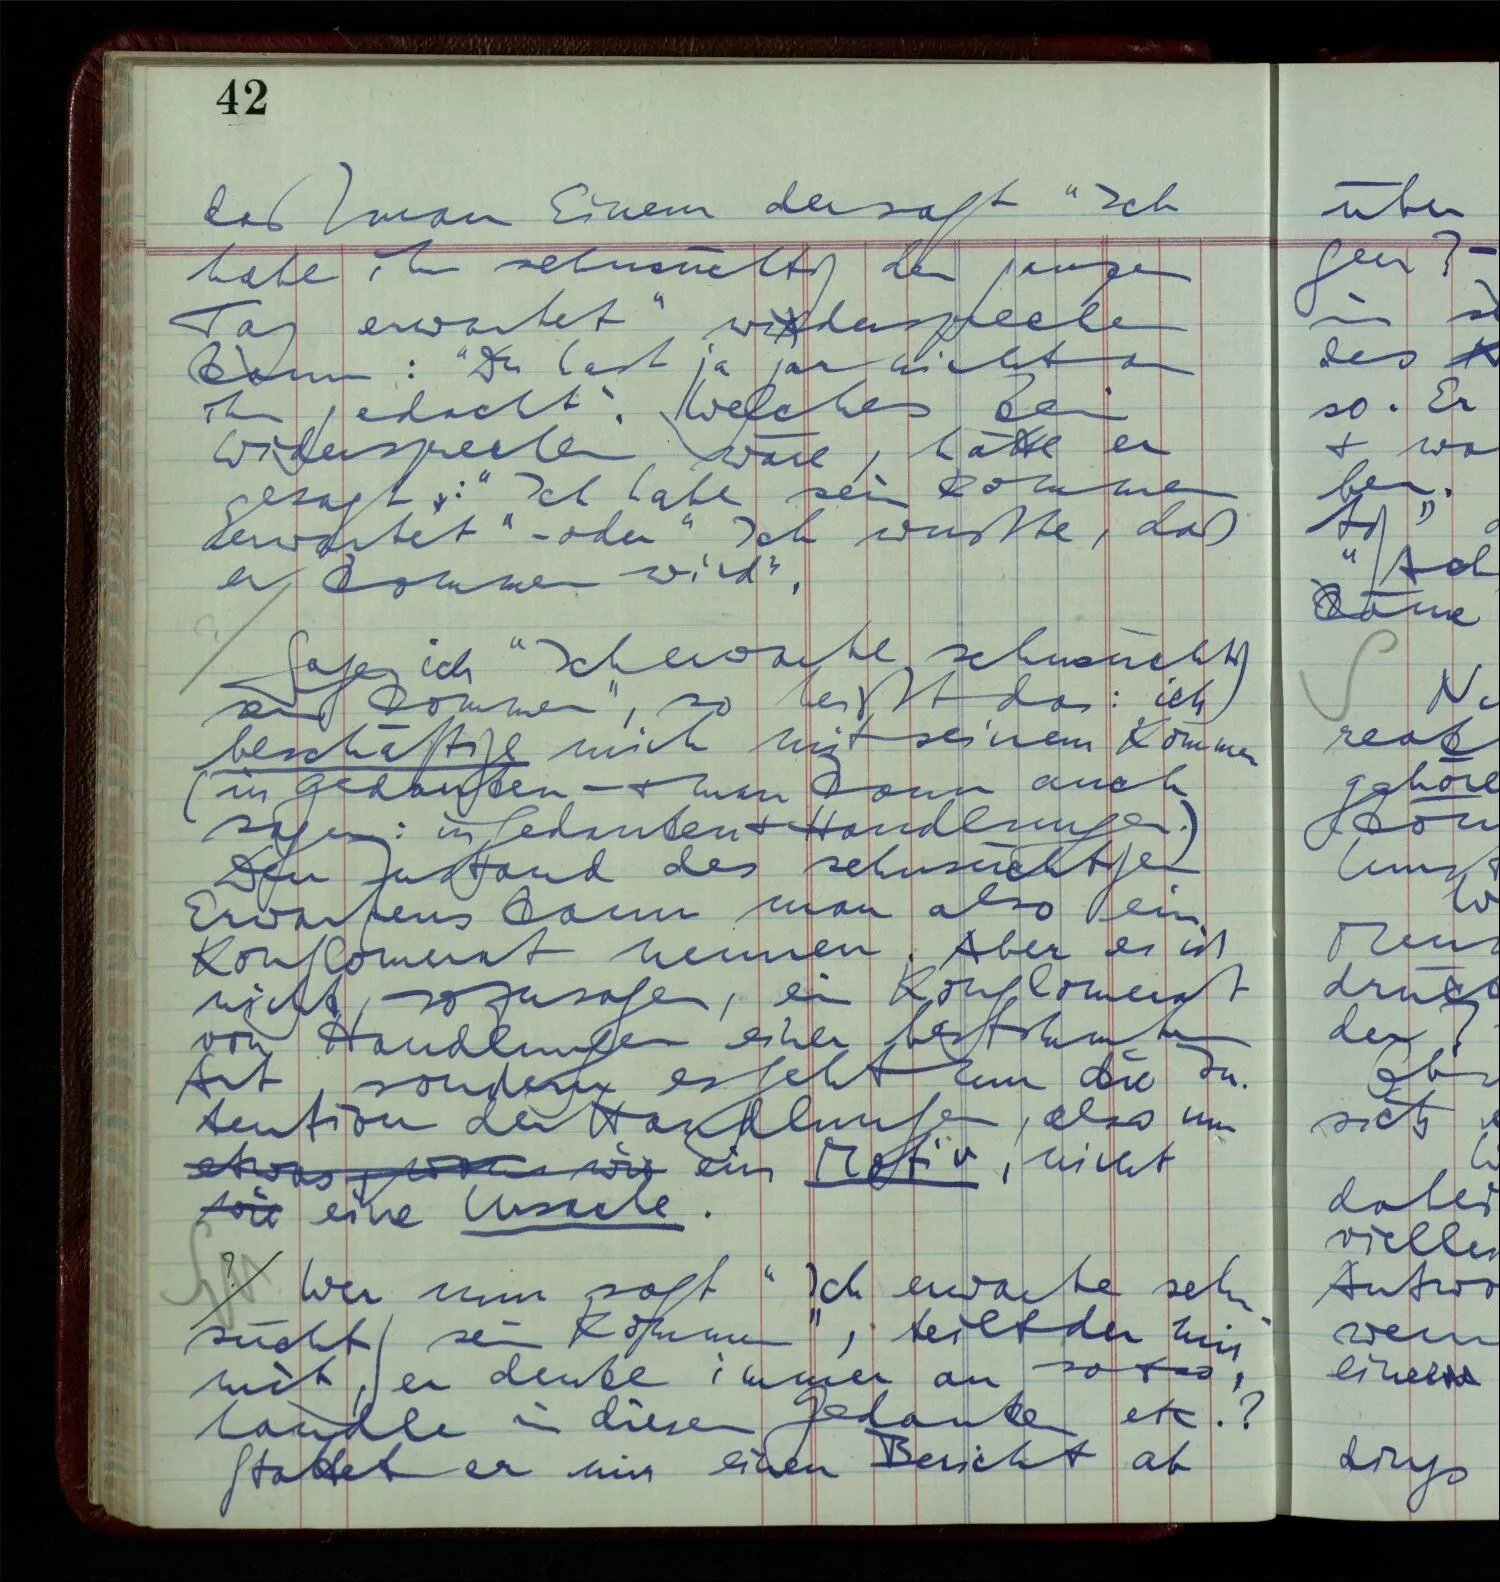 42
daß man Einem der sagt "Ich
habe ihn sehnsüchtig den ganzen
Tag erwartet" widersprechen
kann: "Du hast ja gar nicht an
ihn gedacht". Welches kein
Widersprechen wäre, hätte er
gesagt: "Ich habe sein Kommen
erwartet" - oder "Ich wußte, daß
er kommen wird".
Sage ich "Ich erwarte sehnsüchtig
sein Kommen", so heißt das: ich
beschäftige mich mit seinem Kommen
(in Gedanken – + man kann auch
sagen: in Gedanken + Handlungen.)
Den Zustand des sehnsüchtigen
Erwartens kann man also ein
Konglomerat nennen. Aber es ist
nicht, sozusagen, ein Konglomerat
von Handlungen einer bestimmten
Art, sondern es geht um die In-
tention der Handlungen, also um
etwas, wie ein Motiv, nicht
wie eine Ursache.
?/ Wer nun sagt "Ich erwarte sehn-
süchtig sein Kommen", teilt der mir
mit, er denke immer an so + so,
handle in diesen Gedanken etc.?
Stattet er mir einen Bericht ab
über
gen? –
in
des
so. Er
+
ben.
"Ach
käme
gehöre
den?
sich
daher
einem
dings